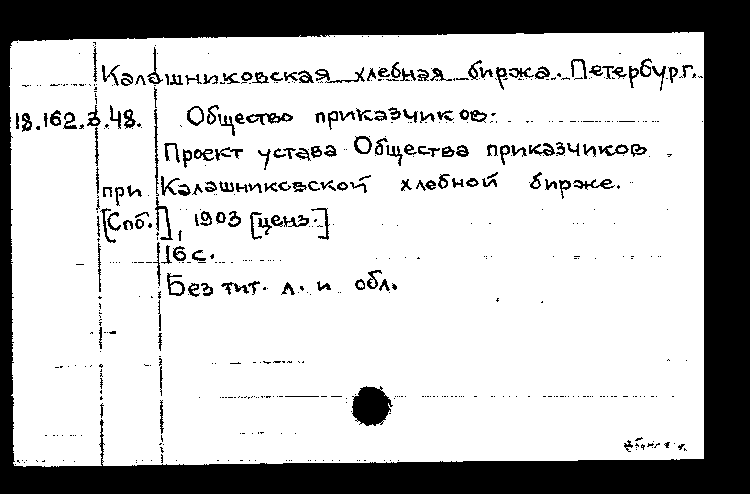 Калашниковская хлебная биржа. Петербург.
18.162.3.48. Общество приказчиков.
Проект устава Общества приказчиков
при Калашниковской хлебной бирже.
[Спб.], 1903 [ценз.]
16 с.
Без тит. л. и обл.